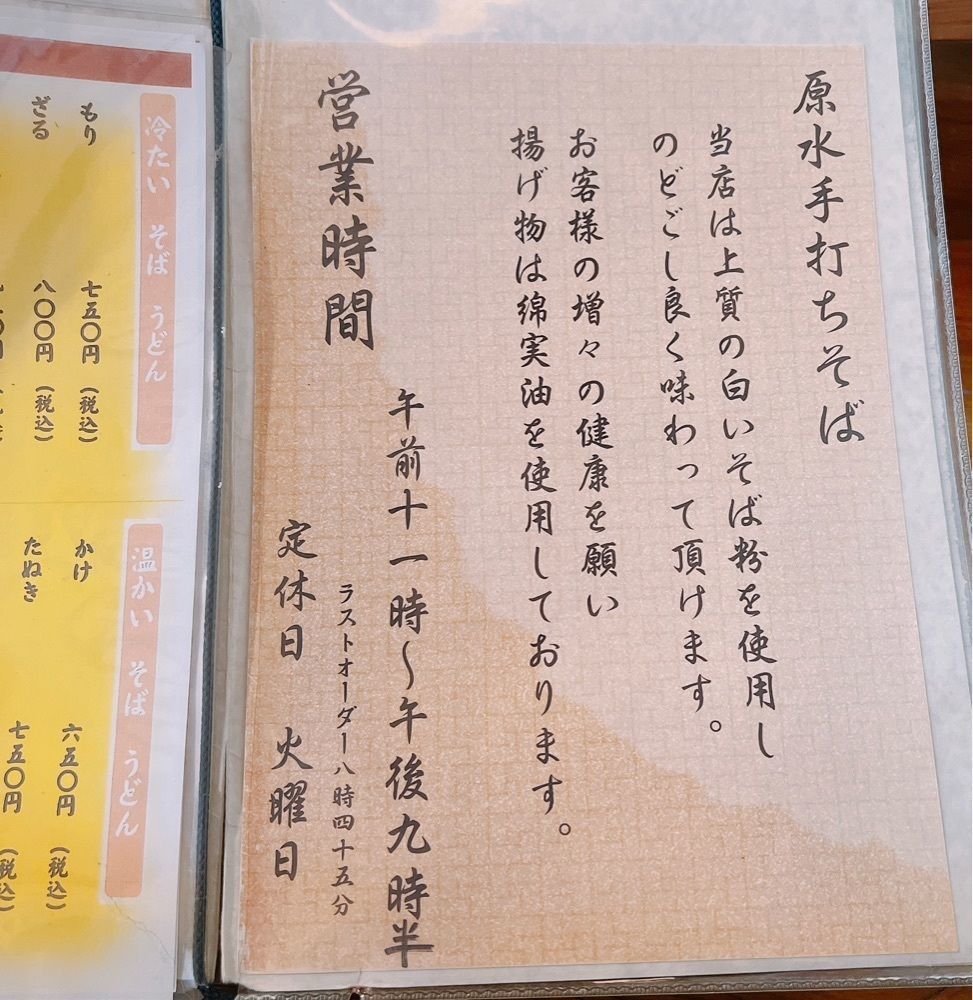 原水手打ちそば
当店は上質の白いそば粉を使用し
のどごし良く味わって頂けます。
お客様の増々の健康を願い
揚げ物は綿実油を使用しております。
営業時間
午前十一時～午後九時半
ラストオーダー八時四十五分
定休日 火曜日
冷たい そば うどん
もり 七五〇円（税込）
ざる 八〇〇円（税込）
温かい そば うどん
かけ 六五〇円（税込）
たぬき 七五〇円（税込）